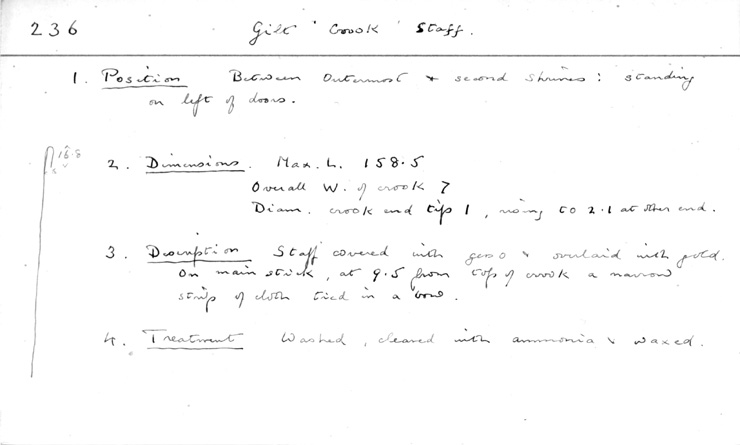 236 Gilt 'Crook' Staff.
1. Position Between Outermost & second shrines: standing
on left of doors.
16.8
2. Dimensions. Max. L. 158.5
Overall W. of crook 7
Diam. crook end tip 1, rising to 2.1 at other end.
3. Description Staff covered with gesso & overlaid with gold.
On main stick, at 9.5 from top of crook a narrow
strip of cloth tied in a bow.
4. Treatment Washed, cleaned with ammonia & waxed.